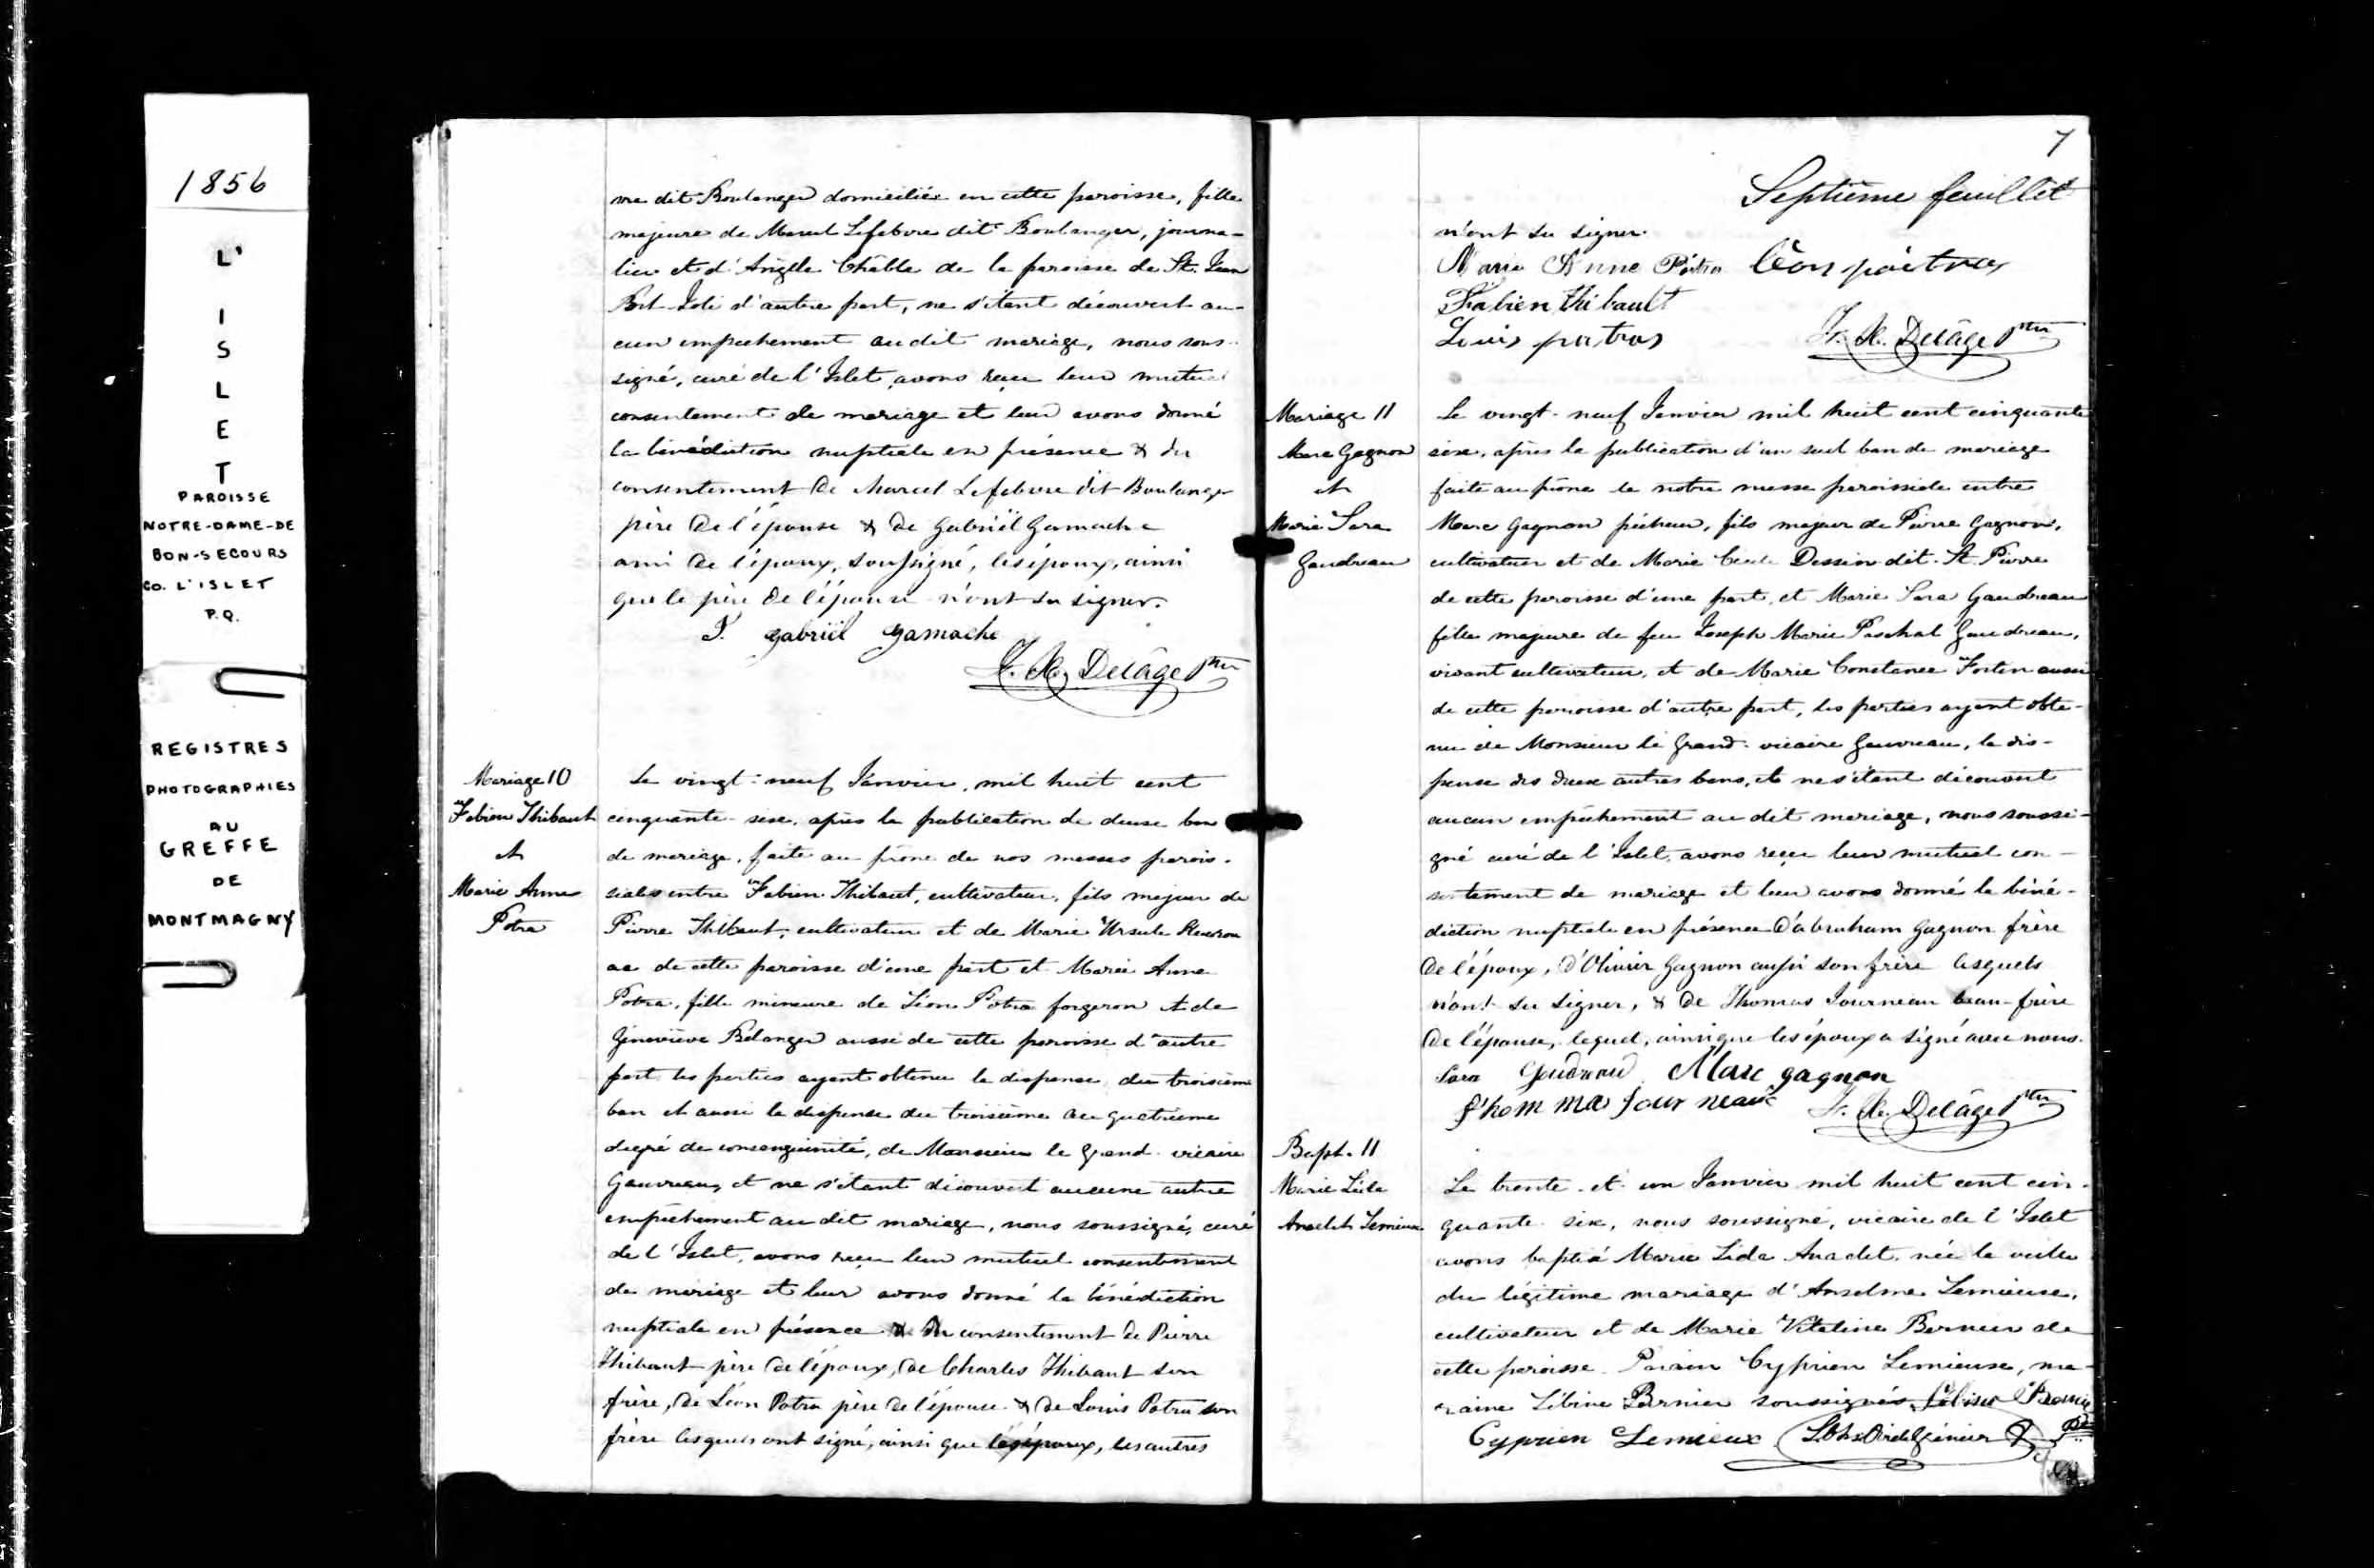 1856
L'
I
S
L
E
T
PAROISSE
NOTRE-DAME-DE
BON-SECOURS
CO. L'ISLET
P.Q.
REGISTRES
PHOTOGRAPHIES
AU
GREFFE
DE
MONTMAGNY
vre dit Boulanger domiciliée en cette paroisse, fille
majeure de Marcel Lefebvre dit Boulanger, journa-
lier et d'Angèle Châble de la paroisse de St. Jean
Port Joli d'autre part, ne s'étant découvert au-
cun empêchement au dit mariage, nous sous-
signé, curé de l'Islet, avons reçu leur mutuel
consentement de mariage et leur avons donné
la bénédiction nuptiale en présence & du
consentement de Marcel Lefebvre dit Boulanger
père de l'épouse & de Gabriel Gamache
ami de l'époux, soussigné, les époux, ainsi
que le père de l'épouse n'ont su signer.
J. gabriël gamache
F. X. Delâge Ptre
Mariage 10
Fabien Thibaut
et
Marie Anne
Potra
Le vingt-neuf Janvier, mil huit cent
cinquante-six, après la publication de deux ban
de mariage, faite au prône de nos messes parois-
siales entre Fabien Thibaut, cultivateur, fils majeur de
Pierre Thibaut, cultivateur et de Marie Ursule
de cette paroisse d'une part et Marie Anne
Potra, fille mineure de Léon Potra forgeron et de
Geneviève Bélanger aussi de cette paroisse d'autre
part les parties ayant obtenu la dispense du troisième
ban et aussi la dispense du troisième au quatrième
degré de consanguinité, de Monsieur le Grand-vicaire
Gauvreau, et ne s'étant découvert aucune autre
empêchement au dit mariage, nous soussigné, curé
de l'Islet, avons reçu leur mutuel consentement
de mariage et leur avons donné la bénédiction
nuptiale en présence & du consentement de Pierre
Thibaut père de l'époux, de Charles Thibaut son
frère, de Léon Potra père de l'épouse & de Louis Potra son
frère lesquels ont signé, ainsi que les époux, les autres
7
Septième feuillet
n'ont su signer.
Marie Anne Poitra Léon poitras
Fabien thibault
Louis potras F. X. Delâge Ptre
Mariage 11
Marc Gagnon
et
Marie Sara
Gaudreau
Le vingt-neuf Janvier mil huit cent cinquante
six, après la publication d'un seul ban de mariage
faite au prône de notre messe paroissiale entre
Marc Gagnon pécheur, fils majeur de Pierre Gagnon,
cultivateur et de Marie Cécile Dessein dit St. Pierre
de cette paroisse d'une part, et Marie Sara Gaudreau
fille majeure de feu Joseph Marie Paschal Gaudreau,
vivant cultivateur, et de Marie Constance Fortin aussi
de cette paroisse d'autre part, les parties ayant obte-
nu de Monsieur le Grand-vicaire Gauvreau, la dis-
pense des deux autres bans, et ne s'étant découvert
aucun empêchement au dit mariage, nous soussi-
gné curé de l'Islet, avons reçu leur mutuel con-
sentement de mariage et leur avons donné la béné-
diction nuptiale en présence d'abraham Gagnon frère
de l'époux, d'Olivier Gagnon aussi son frère lesquels
n'ont su signer, & de Thomas Fourneau beau-frère
de l'épouse, lequel, ainsi que les époux a signé avec nous.
Sara Gaudreau Marc gagnon
thom mas four neaux F. X. Delâge Ptre
Bapt. 11
Marie Léda
Anaclet Lemieux
Le trente-et-un Janvier mil huit cent cin-
quante-six, nous soussigné, vicaire de l'Islet
avons baptisé Marie Léda Anaclet, née la veille
du légitime mariage d'Anselme Lemieux,
cultivateur et de Marie Vitaline Bernier de
cette paroisse. Parain Cyprien Lemieux, ma-
raine Lébine Bernier soussignés.
Cyprien Lemieux